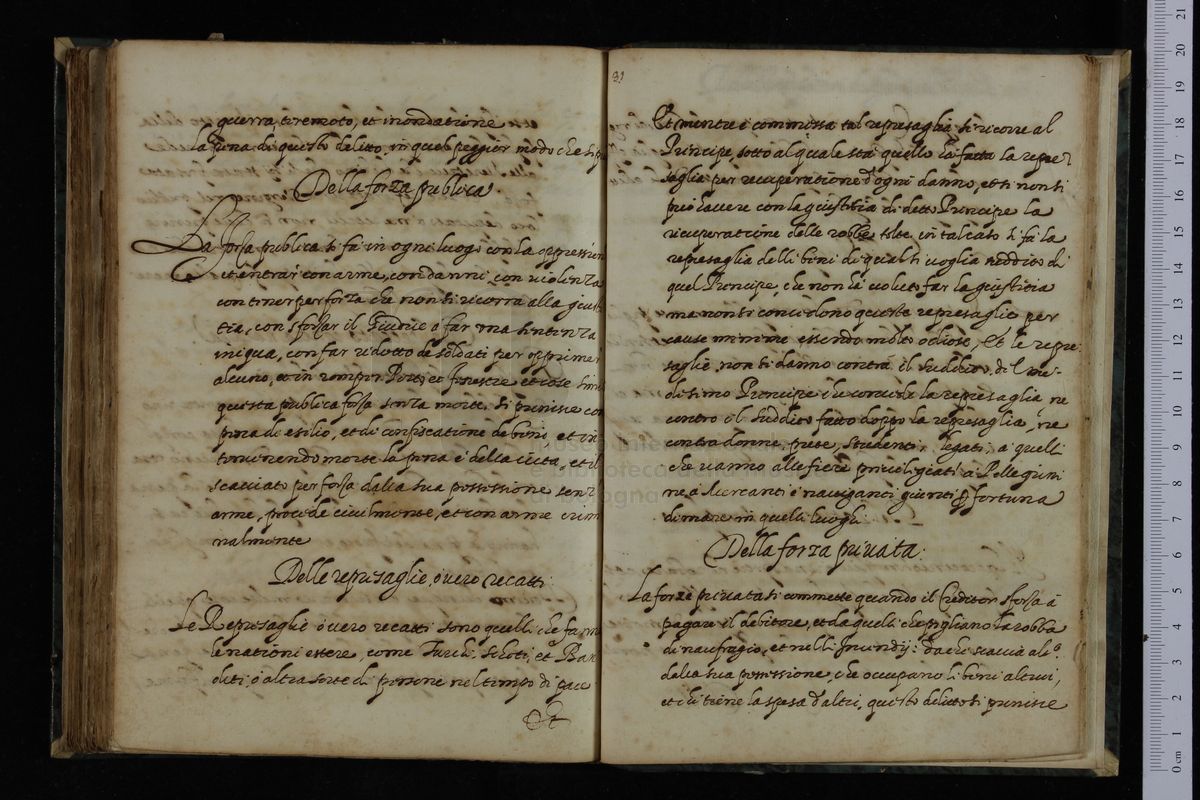 guerra, tiremoto, et inondatione
la pena di questo delitto, in quel peggior modo che si
Della forza publica
La forza publica si fa in ogni luogo con la oppression
et entrar con arme, con danni, con violenza
con tiner per forza che non si ricorra alla gius
tia, con sforzar il Giudice a far una sentenza
iniqua, con far ridotto de soldati per opprimer
alcuno, et in romper Porte et fenestre et cose simi
questa publica forza senza morte, si punisce con
pena di esilio, et di confiscatione de beni, et in
tervenendo morte la pena è della vita, et il
scacciato per forza dalla sua possessione senz
arme, procede civilmente, et con arme crim
nalmente
Delle represaglie, overo recatti
Le Represaglie overo recatti sono quelli che fann
le nationi estere, come Turchi, Schoti, et Ban
diti, o altra sorte di persone nel tempo di pace
Et
31
Et mentre è commissa tal represaglia si ricorre al
Principe, sotto al quale sta quello ha fatta la repre
saglia per recuperatione d'ogni danno, et si non si
può havere con la giustitia di detto Principe la
ricuperatione delle robbe tolte, in tal caso si fa la
represaglia delli beni di qual si voglia suddito di
quel Principe, che non ha voluto far la giustitia
ma non si concedono queste represaglie per
cause minime essendo molto odiose, Et le repre
saglie non si danno contra il suddito, di l'me-
disimo Principe che concede la represaglia, ne
contro il suddito fatto doppo la represaglia, ne
contra donne, prete, studenti, legati, a quelli
che vanno alle fiere privilegiati, a Pellegrini
ne a Mercanti e naviganti giunti p fortuna
di mare in quelli luoghi
Della forza privata:
La forza privata si commette quando il Creditor sforza à
pagare il debitore, et da quelli che pigliano la robba
di naufragio, et nelli Incendij: da chi scaccia alc.º
dalla sua possessione, che occupano li beni altrui,
et chi tiene la spesa d'altri, questo delitto si punisce